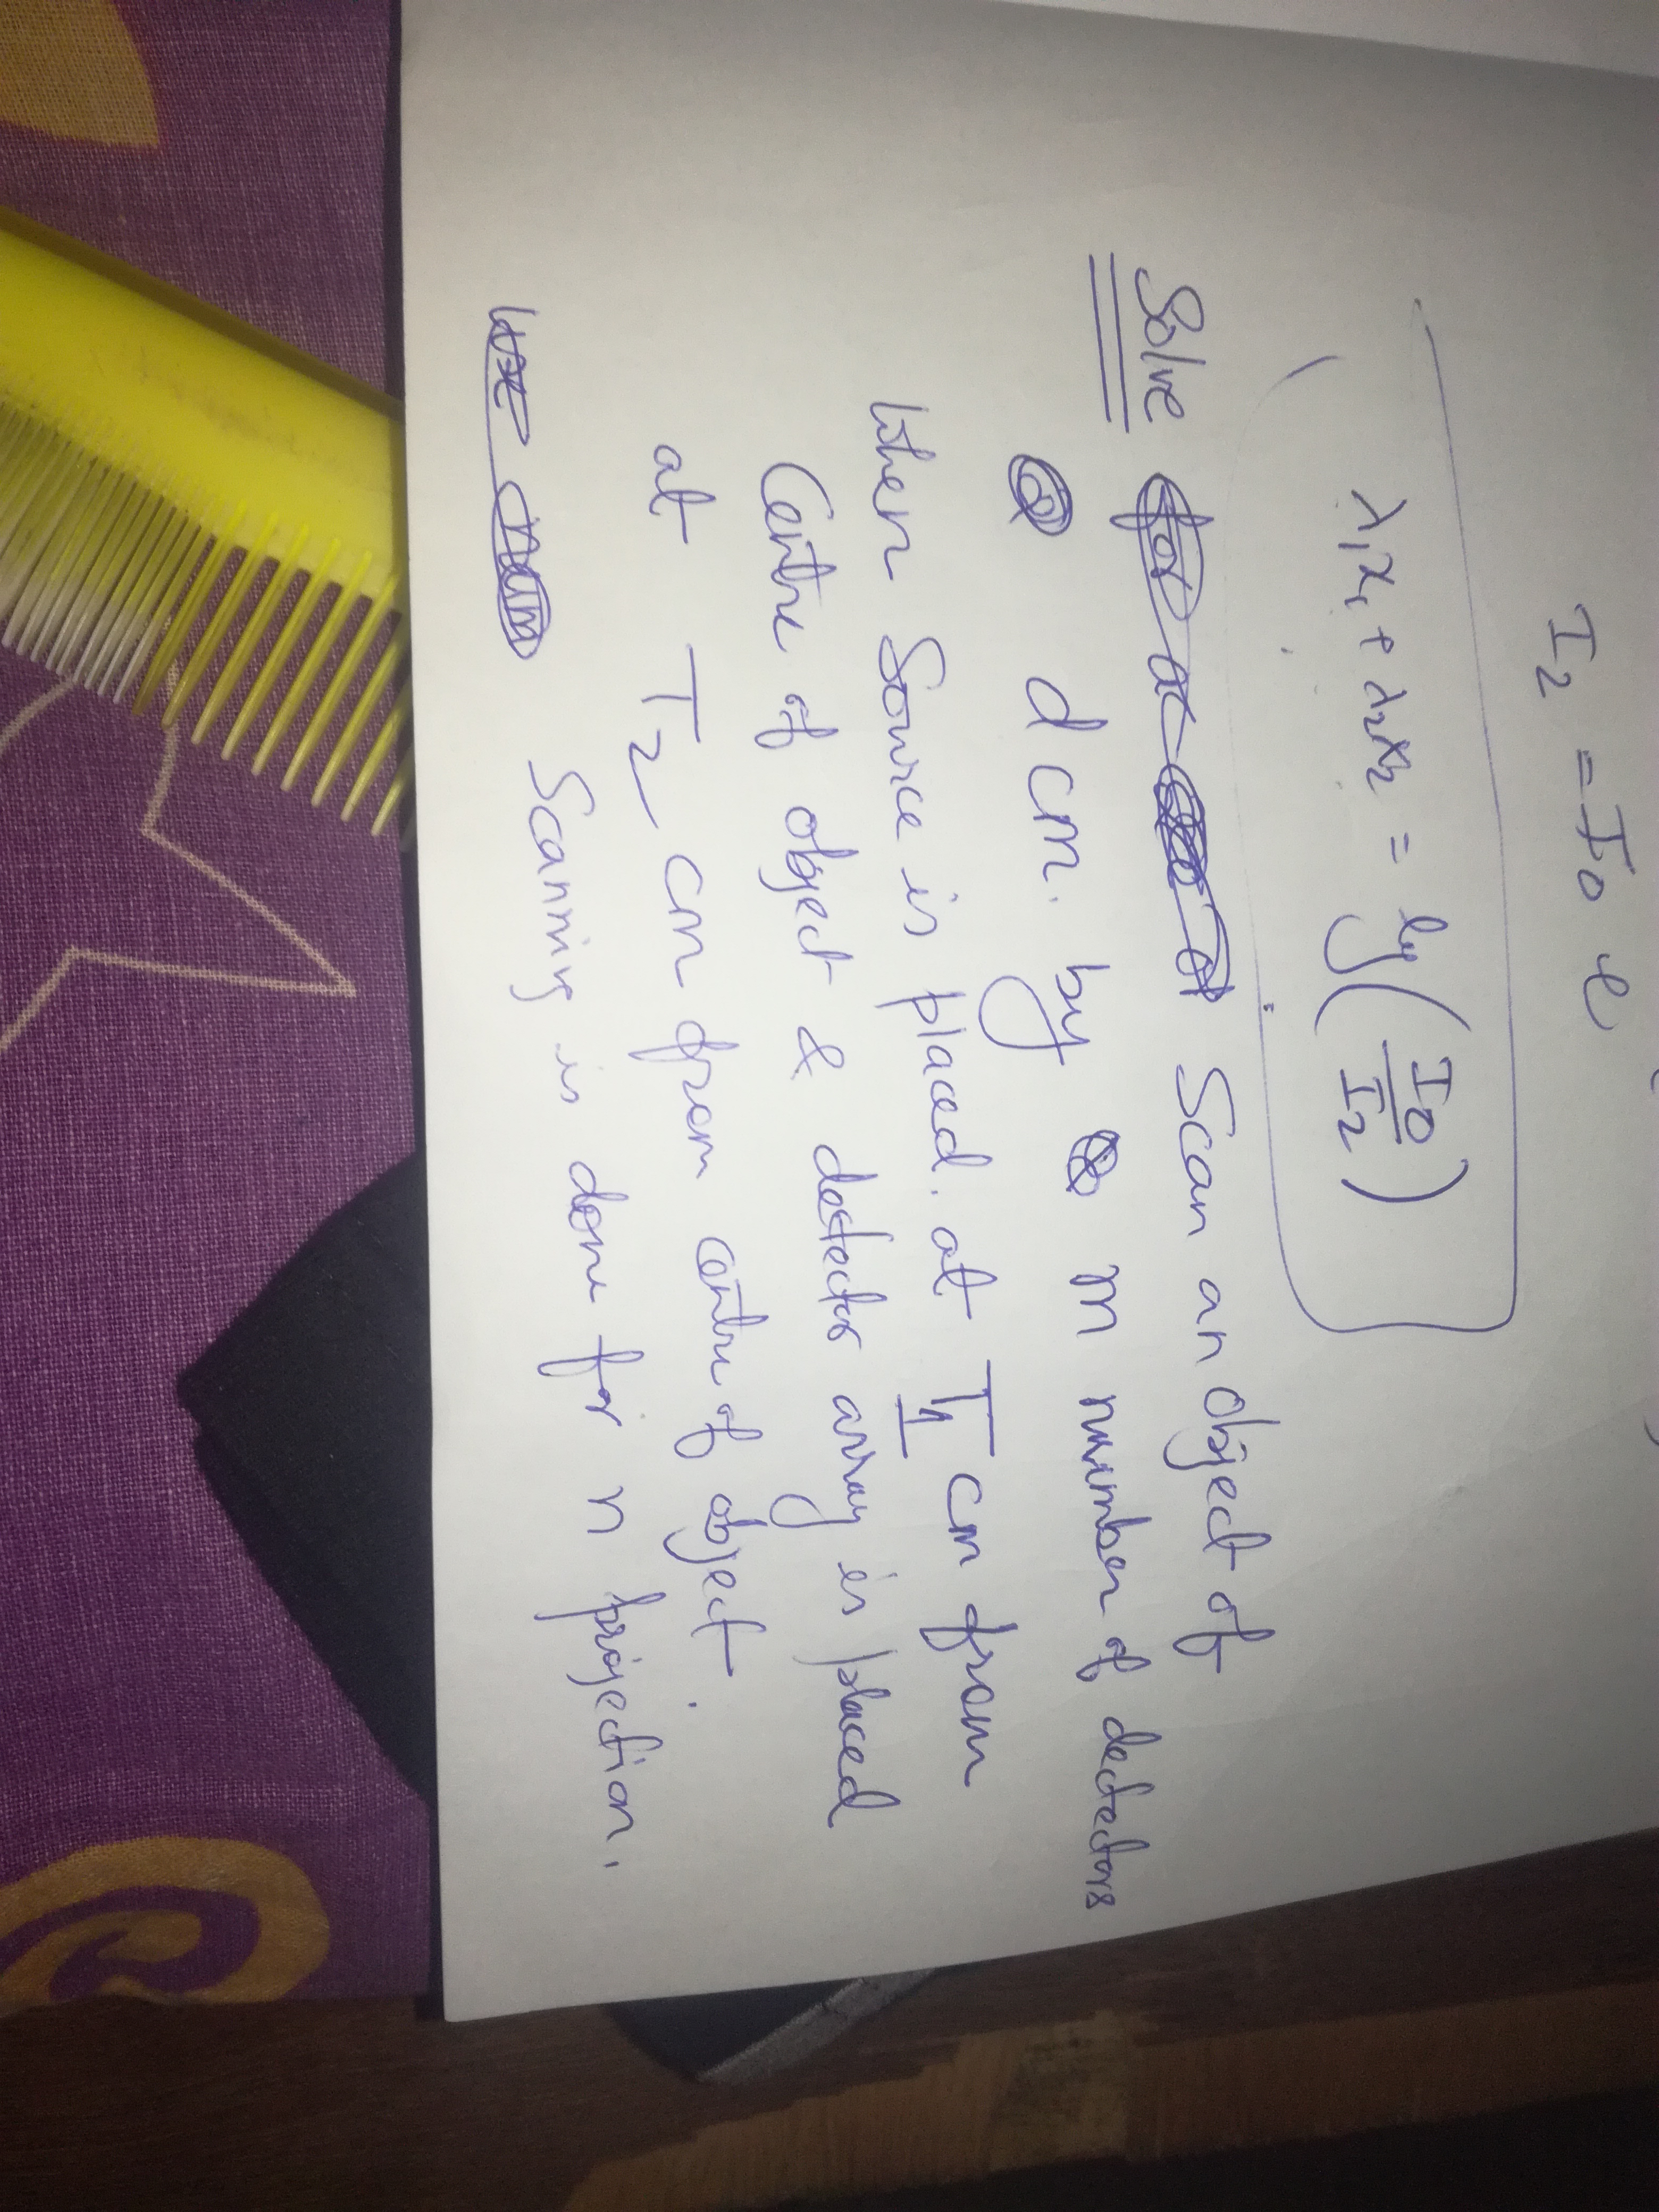 I₂ = I₀ e
λ₁x₁ + λ₂x₂ = log(I₀/I₂)
Solve Scan an object of
d cm. by m number of dectectors
When Source is placed. at T₁ cm from
Centre of object & destector array is placed
at T₂ cm from centre of object.
Scanning is done for n projection.